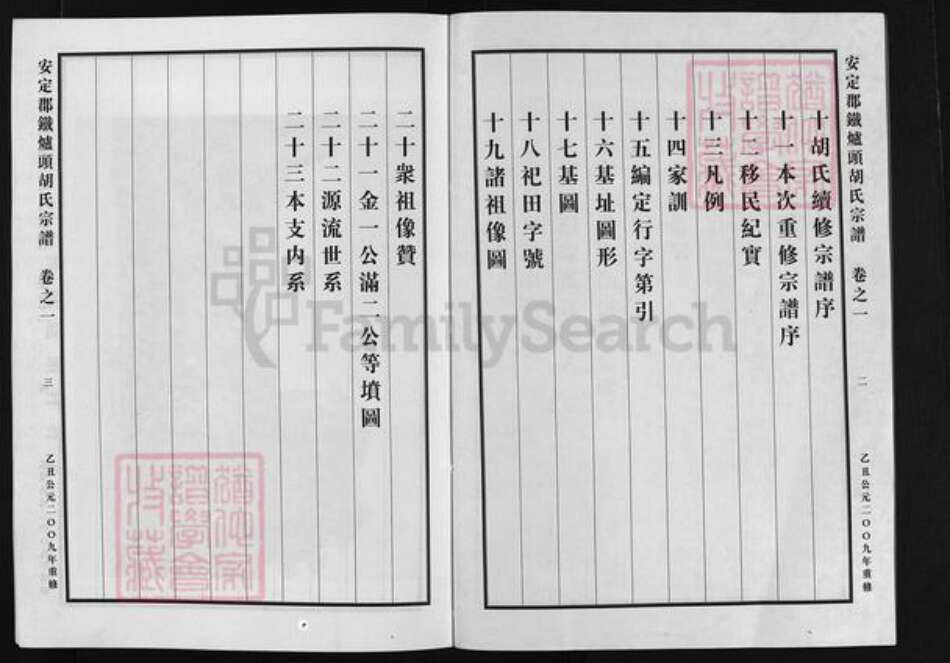 安定郡鐵爐頭胡氏宗譜 卷之一
二
乙丑公元二〇〇九年重修
十胡氏續修宗譜序
十一本次重修宗譜序
十二移民紀實
十三凡例
十四家訓
十五編定行字第引
十六基址圖形
十七基圖
十八祀田字號
十九諸祖像圖
二十衆祖像贊
二十一金一公滿二公等墳圖
二十二源流世系
二十三本支内系
安定郡鐵爐頭胡氏宗譜 卷之一
三
乙丑公元二〇〇九年重修
FamilySearch